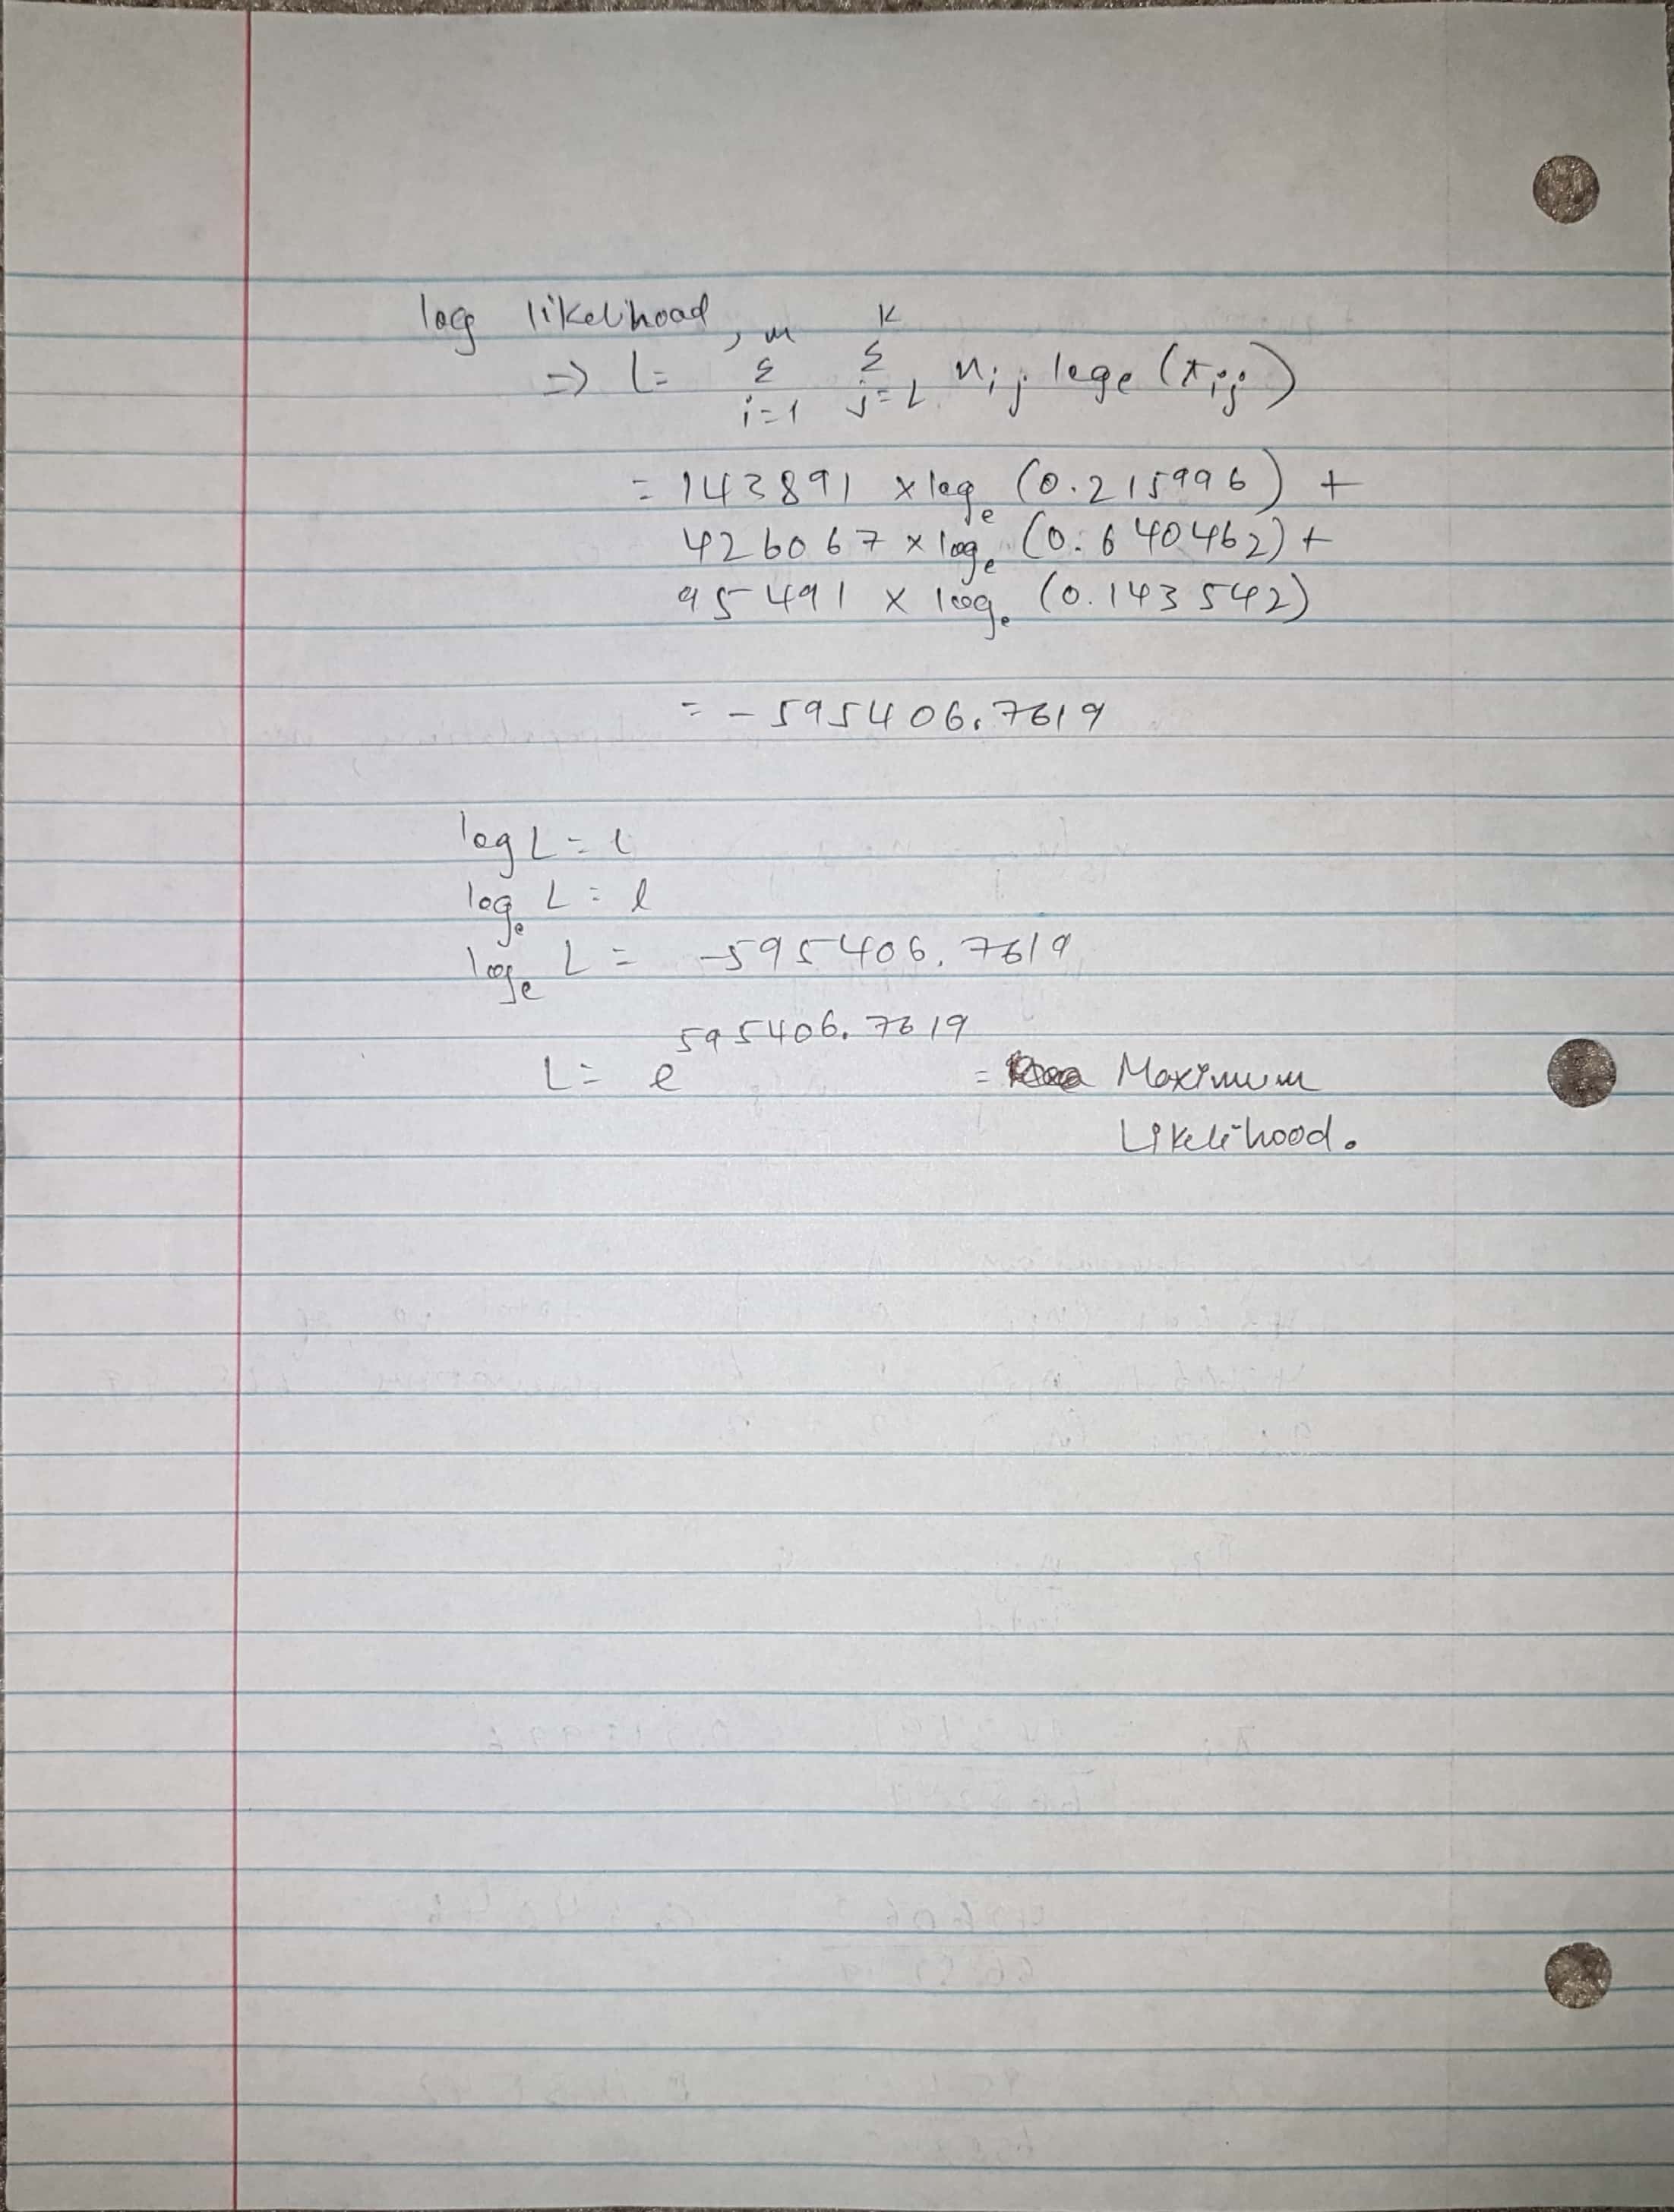 log likelihood,
=> l = m Σ i=1 K Σ j=1 nij loge (πij)
= 143891 x loge (0.215996) +
426067 x loge (0.640462) +
95491 x loge (0.143542)
= - 595406.7619
log L = l
loge L = l
loge L = -595406.7619
L = e 595406.7619 = Maximum
Likelihood.